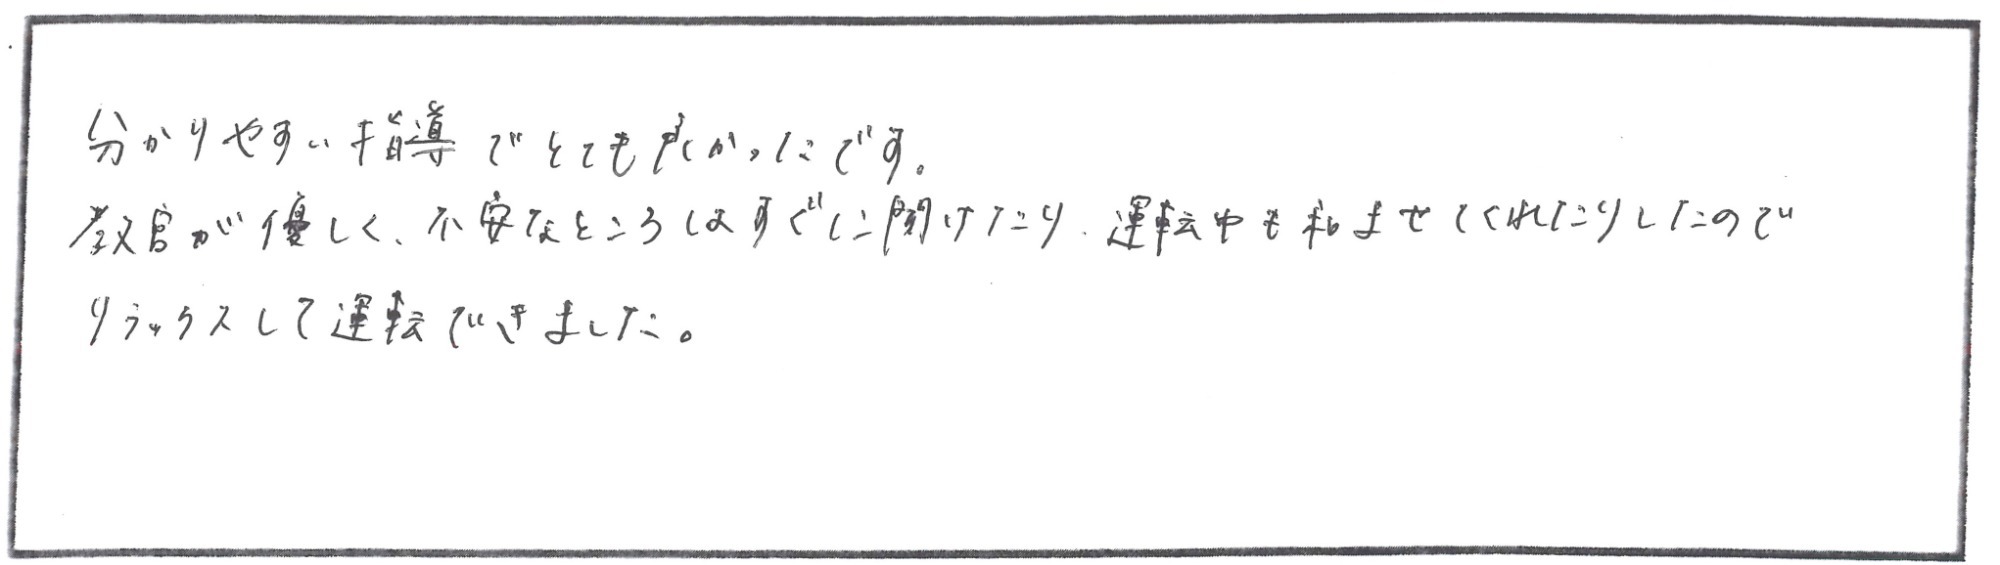 分かりやすい指導でとても良かったです。
教官が優しく、不安なところはすぐに聞けたり、運転中も和ませてくれたりしたので
リラックスして運転できました。